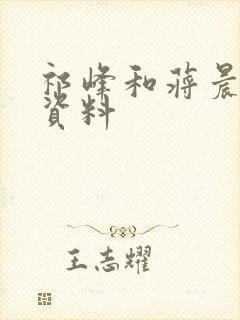 祁峰和蒋晨
资料
王志耀